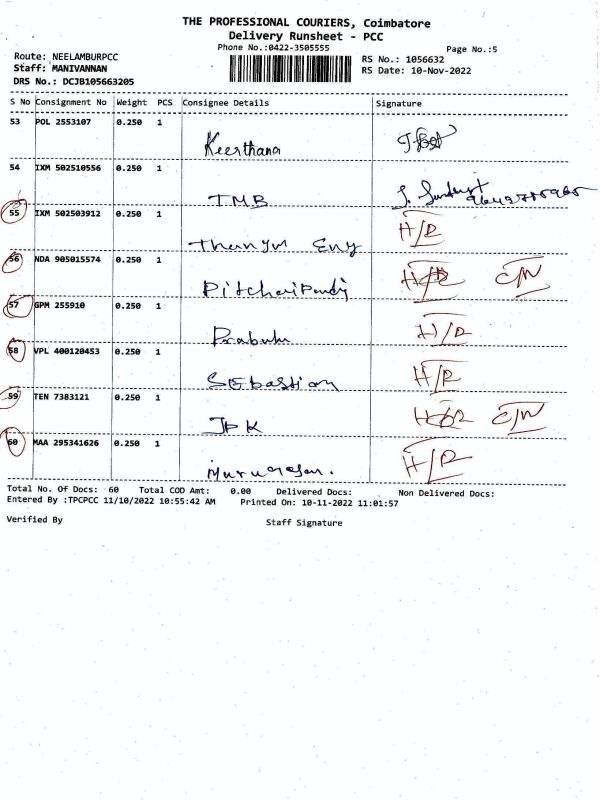 THE PROFESSIONAL COURIERS, Coimbatore
Delivery Runsheet - PCC
Phone No.:0422-3505555
Page No.:5
Route: NEELAMBURPCC
RS No.: 1056632
Staff: MANIVANNAN
RS Date: 10-Nov-2022
DRS No.: DCJB105663205
S No Consignment No Weight PCS Consignee Details Signature
53 POL 2553107 0.250 1
Keerthana
54 IXM 502510556 0.250 1
TMB
55 IXM 502503912 0.250 1 H/R
Eng
56 NDA 905015574 0.250 1
Pitchaipandi C/N
57 GPM 255910 0.250 1
Prabhu H/R
58 VPL 400120453 0.250 1
Sebastian H/R
59 TEN 7383121 0.250 1
JPK C/N
60 MAA 295341626 0.250 1
Murugesan. H/R
Total No. Of Docs: 60 Total COD Amt: 0.00 Delivered Docs: Non Delivered Docs:
Entered By :TPCPCC 11/10/2022 10:55:42 AM Printed On: 10-11-2022 11:01:57
Verified By Staff Signature